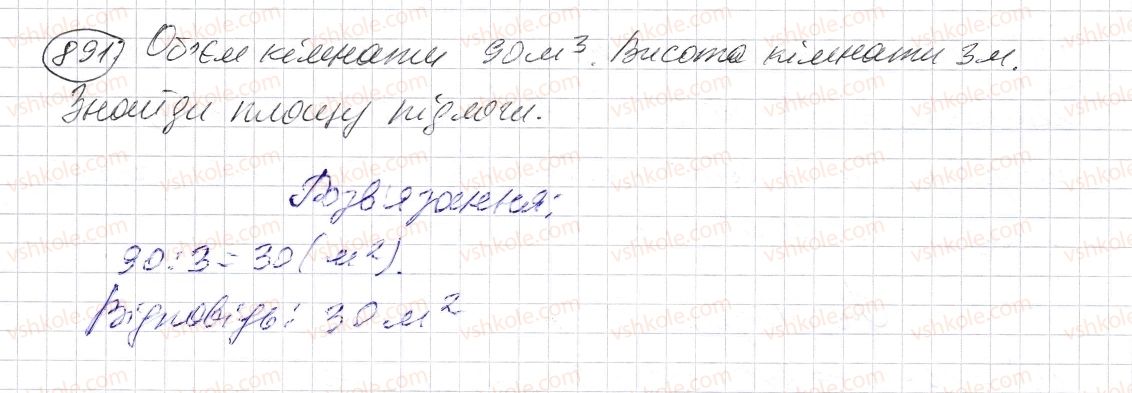 891) Об'єм кімнати 90 м³. Висота кімнати 3 м.
Знайди площу підлоги.
Розв'язання:
90 : 3 = 30 (м²).
Відповідь: 30 м²